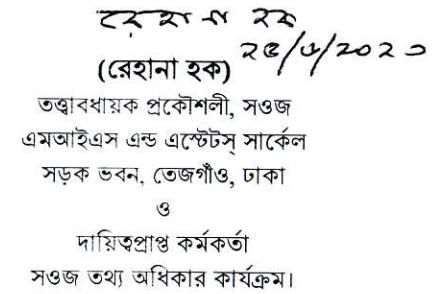 রেহানা হক
(রেহানা হক)
তত্ত্বাবধায়ক প্রকৌশলী, সওজ
এমআইএস এন্ড এস্টেটস্ সার্কেল
সড়ক ভবন, তেজগাঁও, ঢাকা
ও
দায়িত্বপ্রাপ্ত কর্মকর্তা
সওজ তথ্য অধিকার কার্যক্রম।